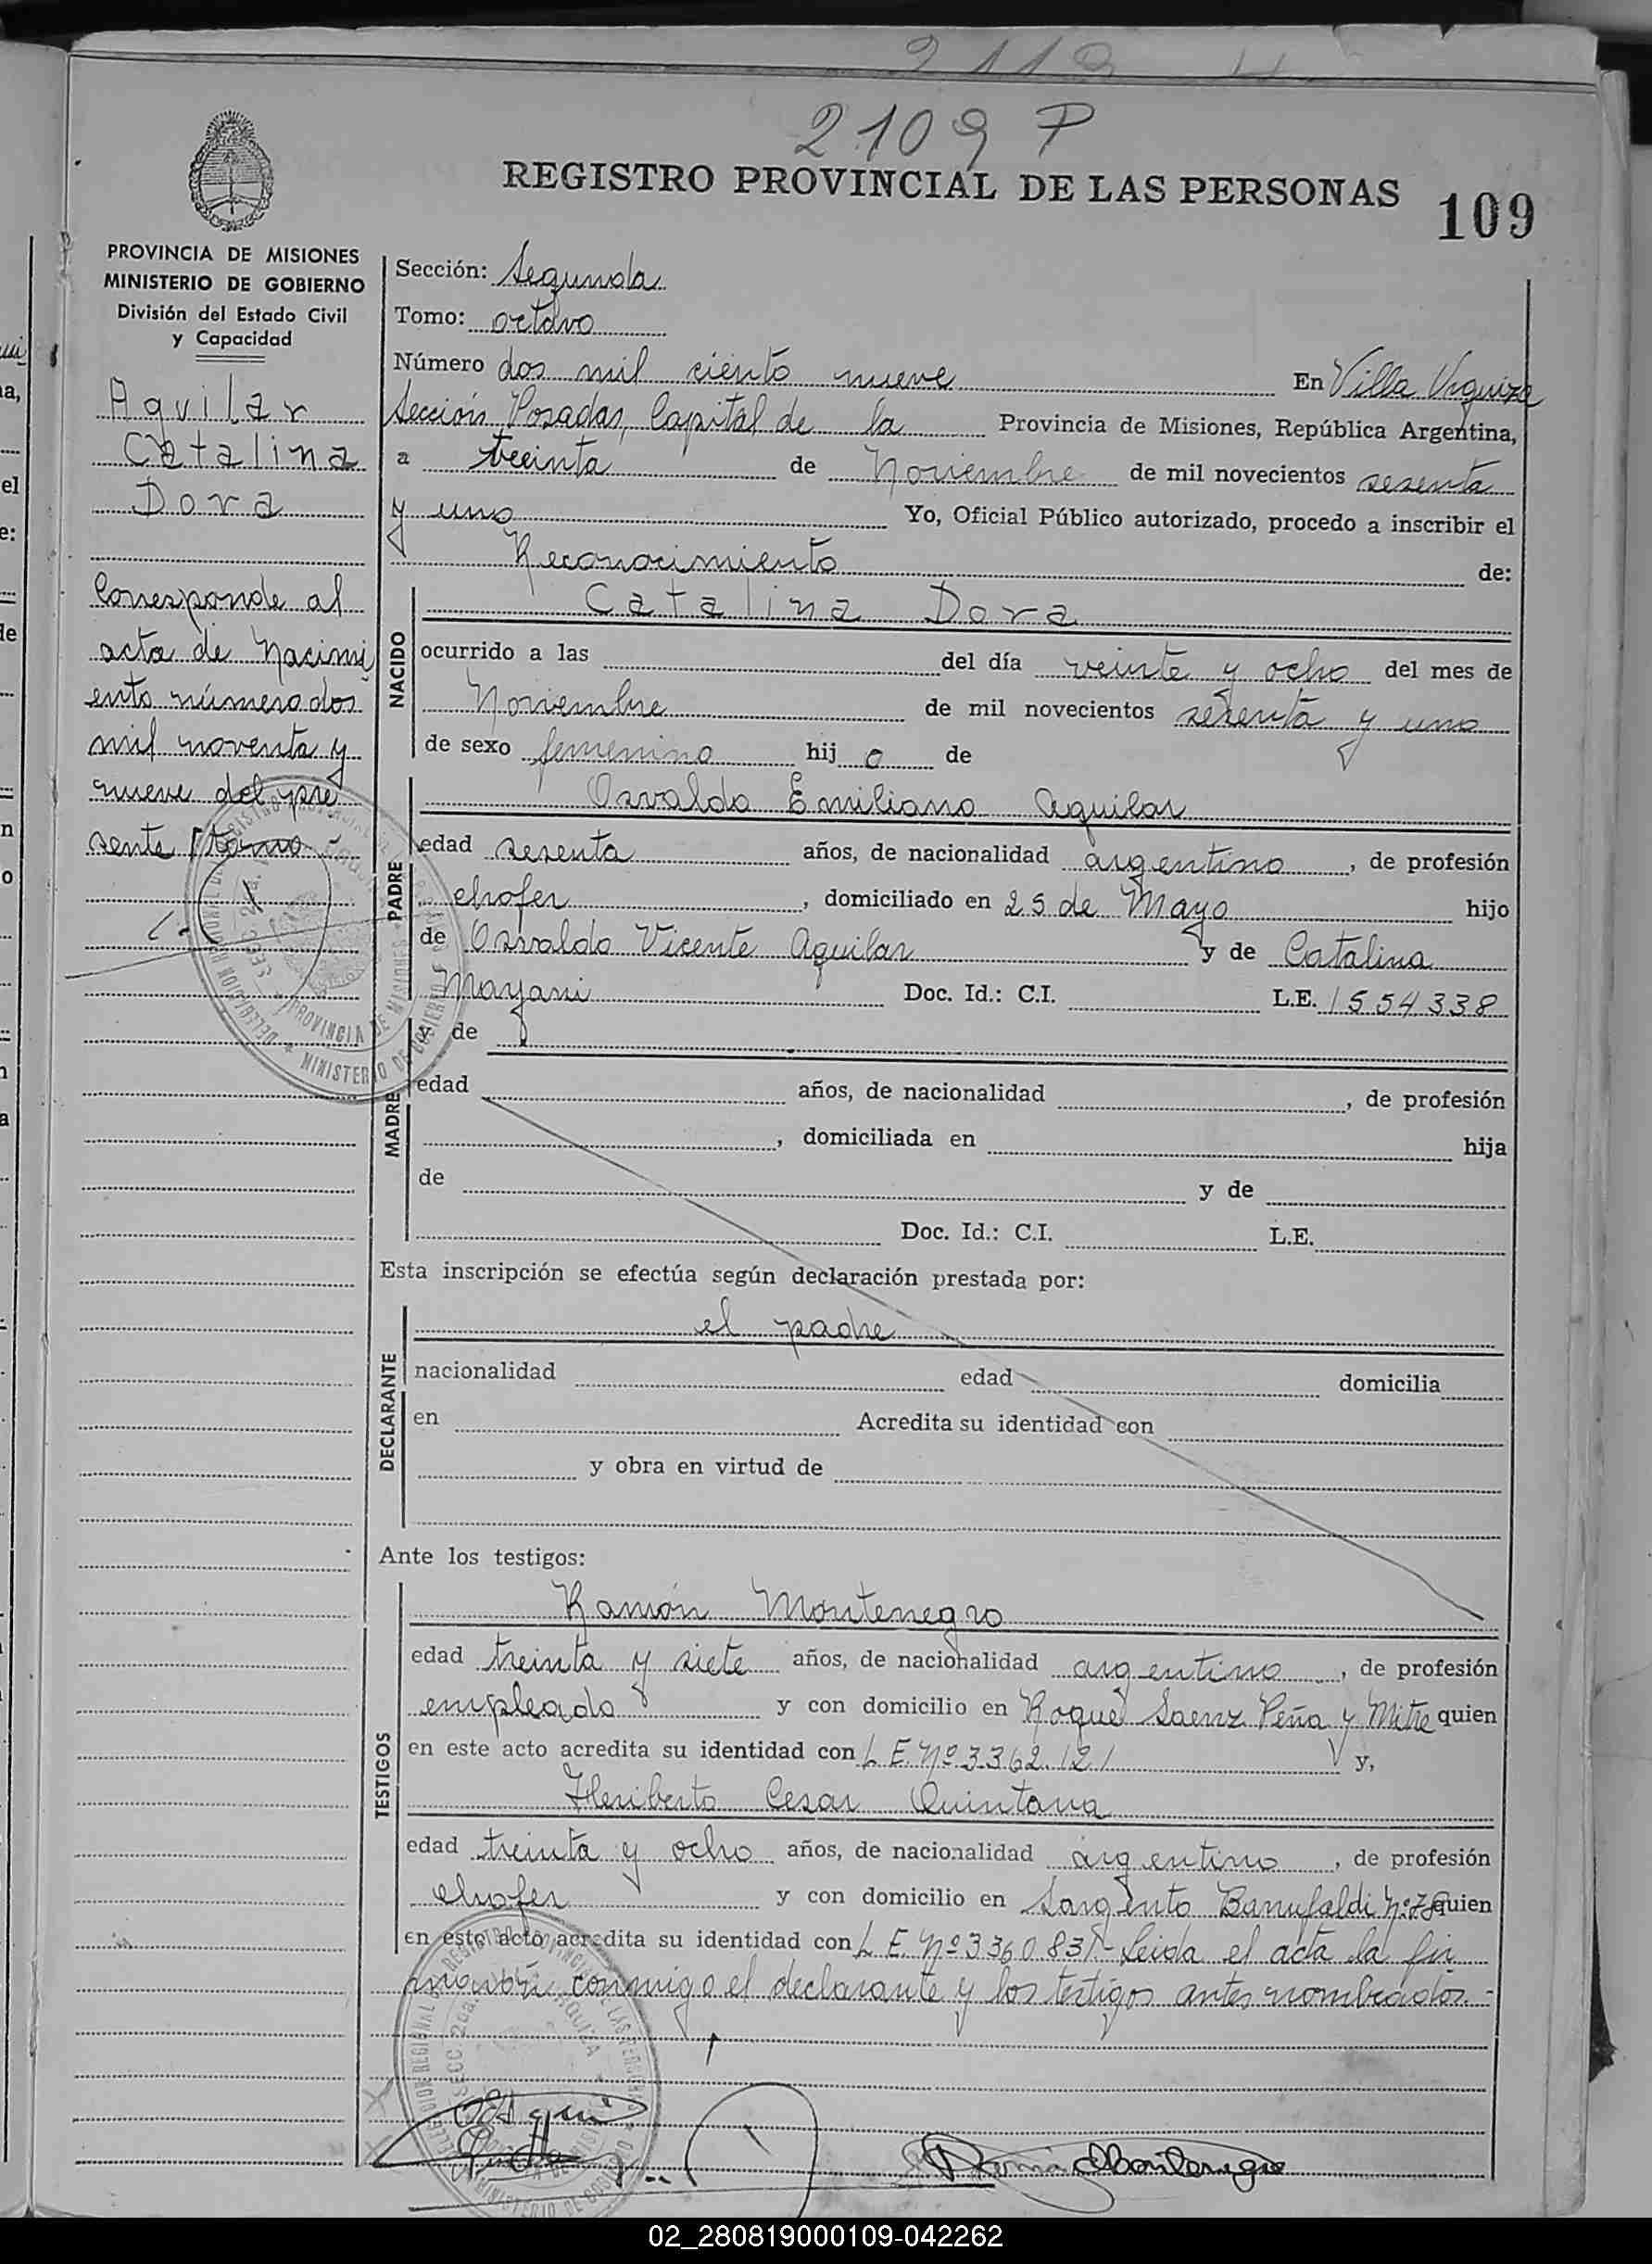 2109 P
REGISTRO PROVINCIAL DE LAS PERSONAS
109
PROVINCIA DE MISIONES
MINISTERIO DE GOBIERNO
División del Estado Civil
y Capacidad
Aguilar
Catalina
Dora
Corresponde al
acta de Nacimi
ento número dos
mil noventa y
nueve del pre
sente tomo
Sección: Segunda
Tomo: octavo
Número dos mil ciento nueve En Villa Urquiza
Sección Posadas, Capital de la Provincia de Misiones, República Argentina,
a treinta de Noviembre de mil novecientos sesenta
y uno Yo, Oficial Público autorizado, procedo a inscribir el
Reconocimiento de:
NACIDO
Catalina Dora
ocurrido a las del día veinte y ocho del mes de
Noviembre de mil novecientos sesenta y uno
de sexo femenino hij o de
PADRE
Osvaldo Emiliano Aguilar
edad sesenta años, de nacionalidad argentino, de profesión
chofer, domiciliado en 25 de Mayo hijo
de Osvaldo Vicente Aguilar y de Catalina
Mayani Doc. Id.: C.I. L.E. 1554338
y de
MADRE
edad años, de nacionalidad , de profesión
, domiciliada en hija
de y de
Doc. Id.: C.I. L.E.
Esta inscripción se efectúa según declaración prestada por:
DECLARANTE
el padre
nacionalidad edad domicilia
en Acredita su identidad con
y obra en virtud de
Ante los testigos:
TESTIGOS
Ramón Montenegro
edad treinta y siete años, de nacionalidad argentino, de profesión
empleado y con domicilio en Roque Saenz Peña y Mitre quien
en este acto acredita su identidad con L.E. Nº 3.362.121 y,
Heriberto Cesar Quintana
edad treinta y ocho años, de nacionalidad argentino, de profesión
chofer y con domicilio en Sargento quien
en este acto acredita su identidad con L.E. Nº Leida el acta la fir
maron conmigo el declarante y los testigos antes nombrados.-
02_280819000109-042262